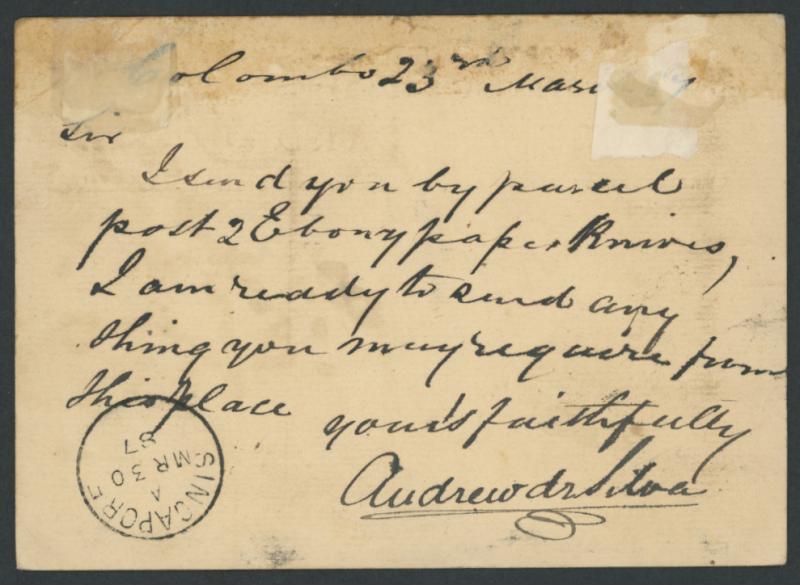 Colombo 23rd Mar
Sir
I send you by parcel
post 2 Ebony paper Knives,
I am ready to send any
thing you may require from
this place
your's faithfully
Andrew de Silva
SINGAPORE
A
MR 30
87